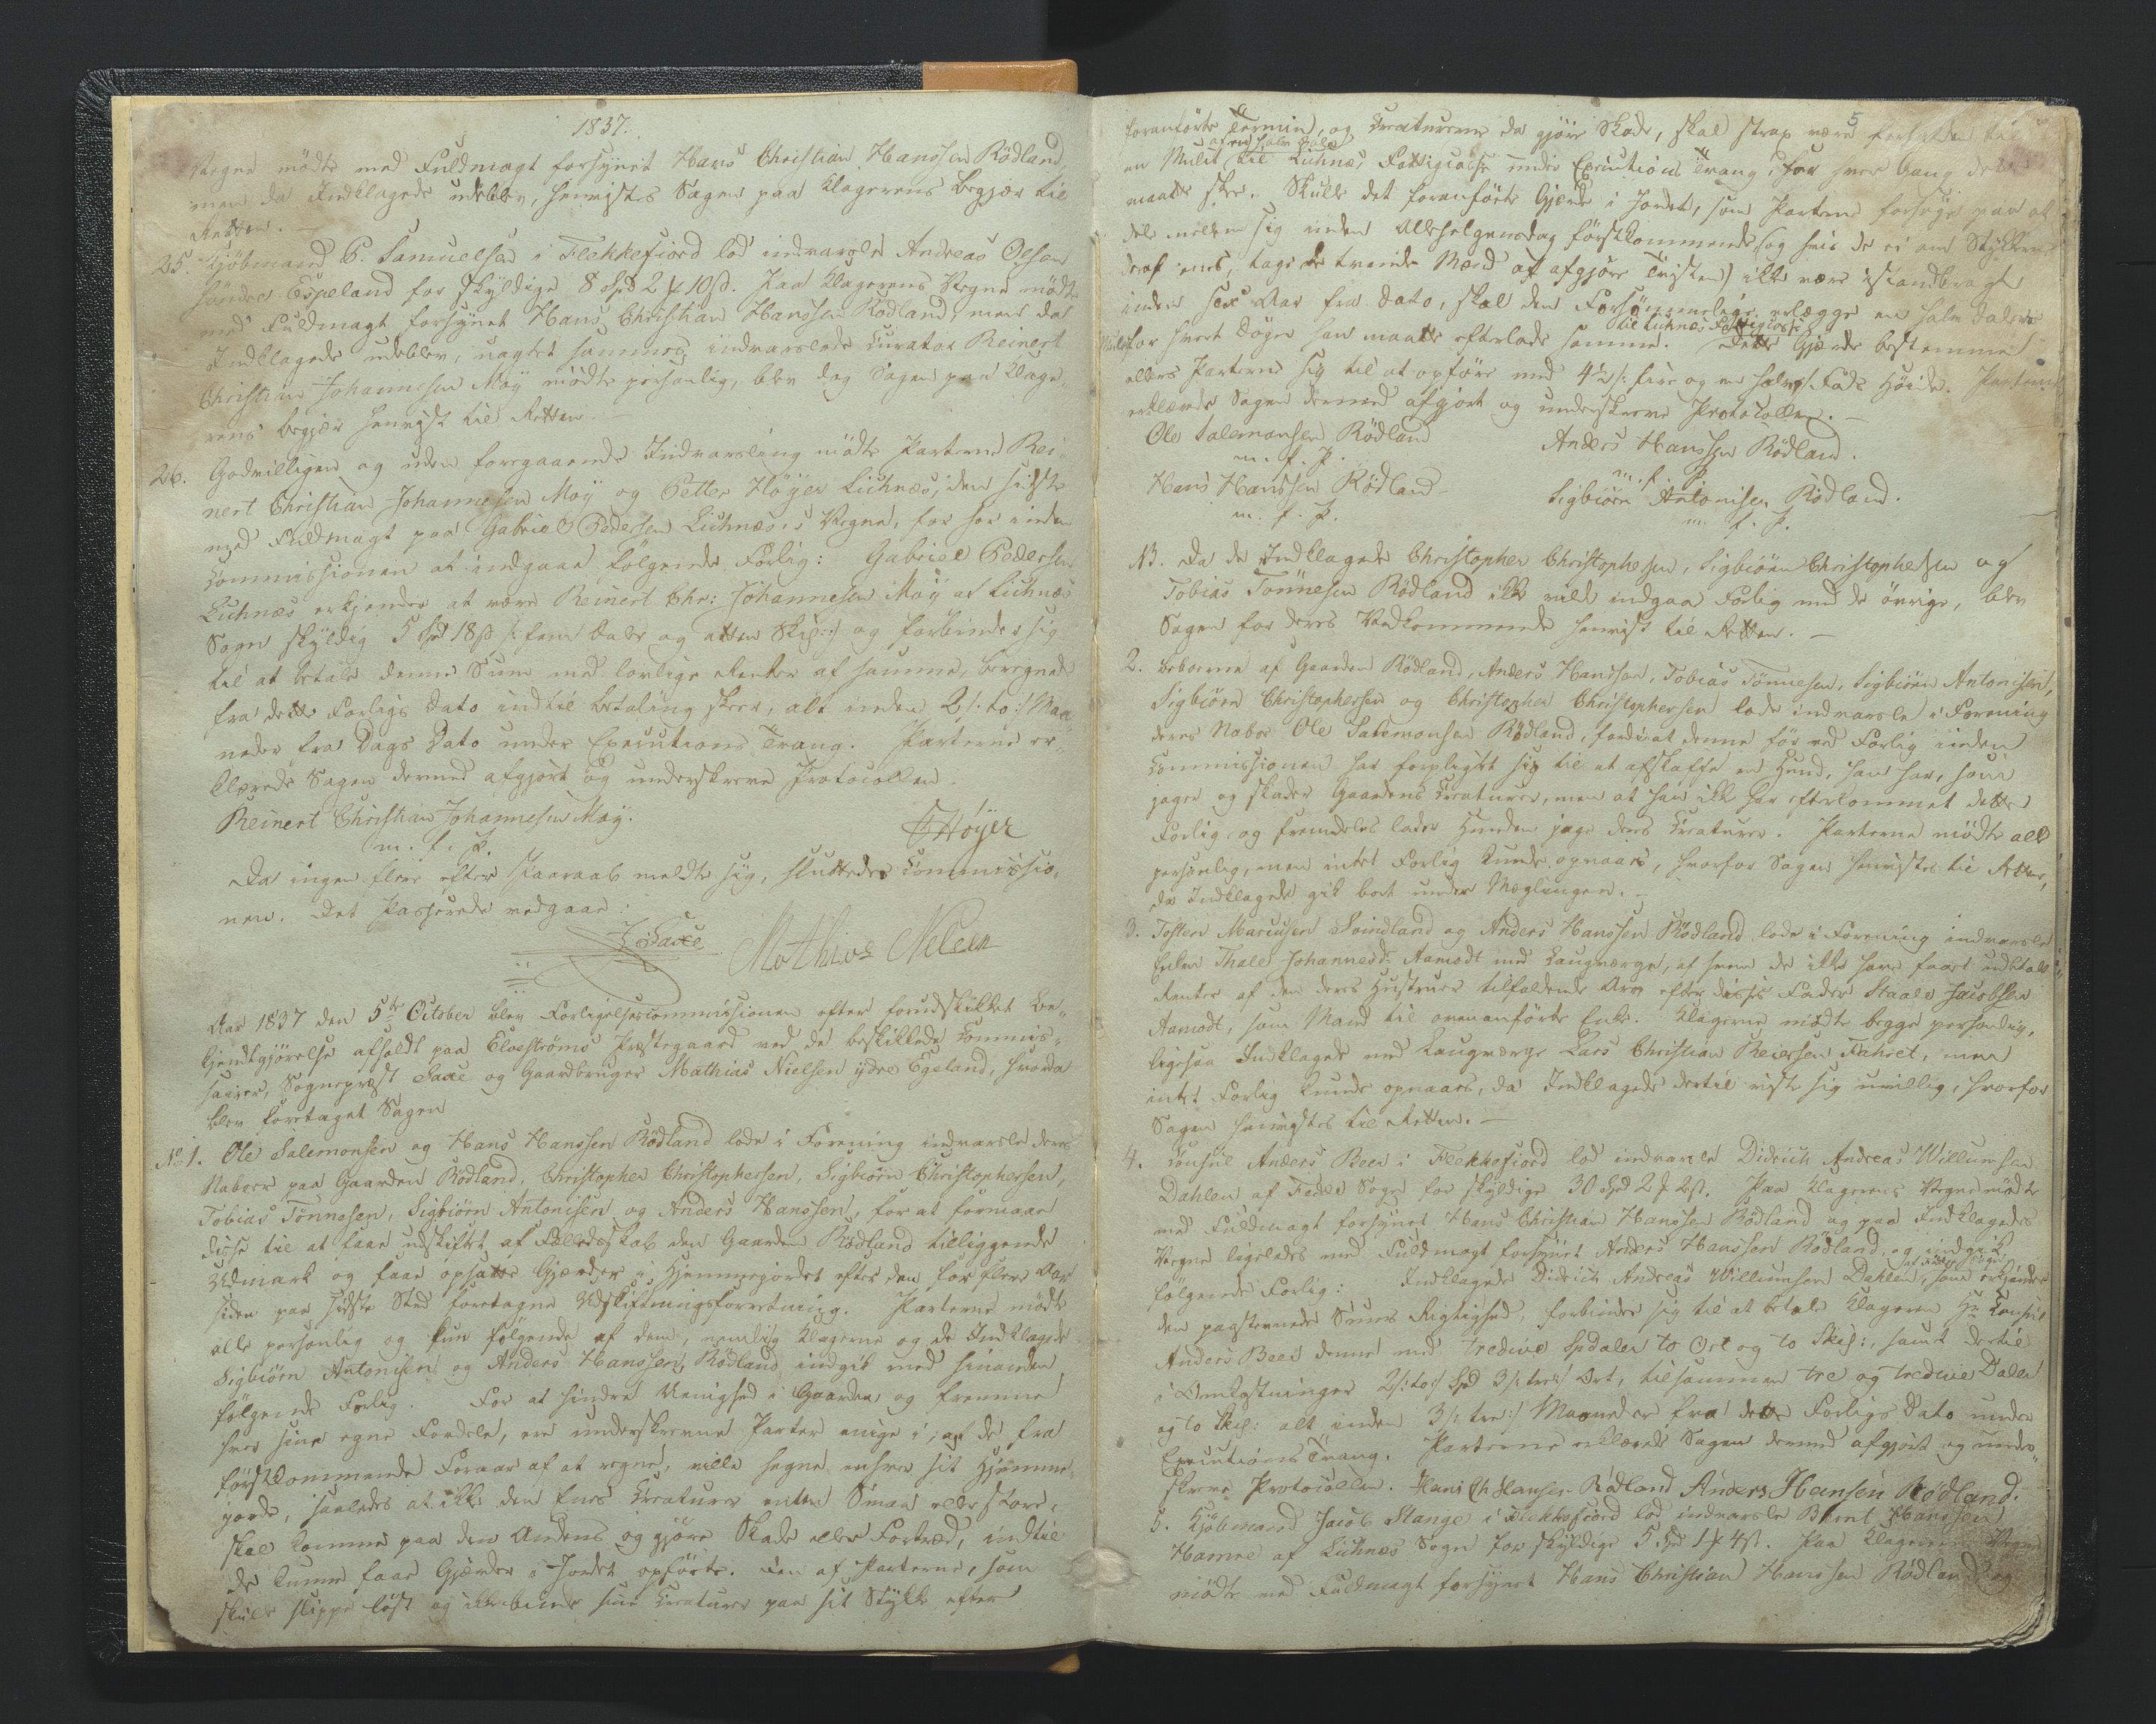 1837.
Vegne mødte med Fuldmagt forsynet Hans Christian Hanssen Rödland,
men da Indklagede udeblev, henvistes Sagen paa Klagerens Begjær til
Retten. —
25. Kjöbmand P. Samuelsen i Flekkefiord lod indvarsle Andreas Olsen
Espeland for skyldige 8 Spd 2 ₰ 10 ß. Paa Klagerens Vegne mødte
med Fuldmagt forsynet Hans Christian Hanssen Rödland, men da
Indklagede udeblev, uagtet hammed indvarslede Curator Reinert
Christian Johannesen Moÿ mödte personlig, blev dog Sagen paa Klage-
rens Begjær henvist til Retten. —
26. Godvilligen og uden foregaaende Indvarsling mödte Parterne Rei-
nert Christian Johannesen Moÿ og Petter Höÿer Lichnæs, den sidste
med Fuldmagt paa Gabriel Pedersen Lichnæs's Vegne, for her inden
Commissionen at indgaae følgende Forlig: Gabriel Pedersen
Lichnæs erkjender at være Reinert Chr: Johannesen Moÿ af Lichnæs
Sogn skyldig 5 Spd 18 ß /: fem Daler og atten Skil :/ og forbinder sig
til at betale denne Sum med lovlige Renter af samme, beregnede
fra dette Forligs Dato indtil Betaling skeer, alt inden 2 /: to :/ Maa-
neder fra Dags Dato under Executions Tvang. Parterne er-
klærede Sagen dermed afgjort og underskreve Protocollen.
Reinert Christian Johannesen Moÿ.
m. f. P.
PHöÿer
Da ingen flere efter Paaraab meldte sig, sluttedes Commissio-
nen. Det Passerede vedgaaer:
Saxe Mathias Nelsen
Aar 1837 den 5te October blev Forligelsescommissionen efter forudskikket Be-
kjendtgjörelse afholdt paa Elvestrøms Præstegaard ved de beskikkede Commis-
sairer, Sognepræst Saxe og Gaardbruger Mathias Nielsen ÿdre Egeland, hvorda
blev foretaget Sagen
No 1. Ole Salemonsen og Hans Hanssen Rödland lode i Forening indvarsle deres
Naboer paa Gaarden Rödland, Christopher Christophersen, Sigbiörn Christophersen,
Tobias Tönnesen, Sigbiörn Antonisen og Anders Hanssen, for at formaae
disse til at faae udskiftet af Fælledsskab den Gaarden Rödland tilliggende
Udmark og faae opsatte Gjærder i Hjemmejordet efter den for flere Aar
siden paa sidste Sted foretagne Udskiftningsforretning. Parterne mödte
alle personlig og kun følgende af dem, nemlig Klagerne og de Indklagede
Sigbiörn Antonisen og Anders Hanssen Rödland indgik med hinanden
følgende Forlig. For at hindre Uenighed i Gaarden og fremme
hver sine egne Fordele, ere underskrevne Parter enige i, at de fra
førstkommende Foraar af at regne, ville hegne enhver sit Hjemme-
jorde, saaledes at ikke den Enes Creaturer enten Smaa eller store,
skal komme paa den Andens og gjöre Skade eller Fortræd, indtil
de kunne faae Gjærder i Jordet opförte. Den af Parterne, som
skule slippe löst og ikke binde sine Creaturer paa sit Stykke efter
5
foranförte Termin, og Creaturerne da gjöre Skade, skal strax være forfalden til
en Mulct af en halv Daler til Lichnæs Fattigcasse under Executions Tvang, for hver Gang dette
maatte skee. Skulde det foranförte Gjærde i Jordet, som Parterne forsøge paa at
dele mellem sig inden Allehelgensdag förstkommende (og hvis de ei om Stykkerne
deraf enes, tage de tvende Mænd at afgjöre Tvisten) ikke være istandbragt
inden sex Aar fra Dato, skal den Forsømmelige erlægge en halv Dalers
Mulct for hvert Döger han maatte efterlade samme til Lichnæs Fattigcasse. Dette Gjærde bestemme
ellers Parterne sig til at opföre med 4½ /: fire og en halv :/ Fods Höide. Parterne
erklærede Sagen dermed afgjort og underskreve Protocollen. —
Ole Salemonsen Rödland
m. f. P.
Anders Hanssen Rödland.
m. f. P.
Hans Hanssen Rödland
m. f. P.
Sigbiörn Antonisen Rödland.
m. f. P.
NB. Da de Indklagede Christopher Christophersen, Sigbiörn Christophersen og
Tobias Tönnesen Rödland ikke vilde indgaa Forlig med de övrige, blev
Sagen for deres Vedkommende henvist til Retten. —
2. Beboerne af Gaarden Rödland, Anders Hanssen, Tobias Tönnesen, Sigbiörn Antonisen,
Sigbiörn Christophersen og Christopher Christophersen lode indvarsle i Forening
deres Nabo Ole Salemonsen Rödland, fordi at denne för ved Forlig inden
Commissionen har forpligtet sig til at afskaffe en Hund, han har, som
jager og skader Gaardens Creaturer, men at han ikke har efterkommet dette
Forlig og fremdeles lader Hunden jage deres Creaturer. Parterne mödte alle
personlig, men intet Forlig kunde opnaaes, hvorfor Sagen henvistes til Retten,
da Indklagede gik bort under Mæglingen. —
3. Tosten Mariusen Svindland og Anders Hanssen Rödland lode i Forening indvarsle
Enken Thale Johannesdr Aamodt med Laugværge, af hvem de ikke have faaet udbetalt
Renter af den deres Hustruer tilfaldende Arv efter disses Fader Staale Jacobsen
Aamodt, som Mand til ovenanførte Enke. Klagerne mødte begge personlig,
ligesaa Indklagede med Laugværge Lars Christian Reiersen Fahret, men
intet Forlig kunde opnaaes, da Indklagede dertil viste sig uvillig, hvorfor
Sagen henvistes til Retten. —
4. Consul Anders Beer i Flekkefiord lod indvarsle Didrich Andreas Willumsen
Dahlen af Fede Sogn for skyldige 30 Spd 2 ₰ 2 ß. Paa Klagerens Vegne mødte
med Fuldmagt forsynet Hans Christian Hanssen Rödland og paa Indklagedes
Vegne ligeledes med Fuldmagt forsynet Anders Hanssen Rödland, og indgik
følgende Forlig: Indklagede Didrich Andreas Willumsen Dahlen, som erkjender
den paastævnede Sums Rigtighed, forbinder sig til at betale Klageren Hr Consul
Anders Beer denne med tredive Spdaler to Ort og to Skil:, samt dertil
i Omkostninger 2 /: to :/ Spd 3 /: tre :/ Ort, tilsammen tre og tredive Daler
og to Skil: alt inden 3 /: tre :/ Maaneder fra dette Forligs Dato under
Executions Tvang. Parterne erklærede Sagen dermed afgjort og under-
skreve Protocollen. Hans Ch Hansen Rödland Anders Hansen Rödland.
5. Kjöbmand Jacob Stange i Flekkefiord lod indvarsle Bernt Hanssen
Hamre af Lichnæs Sogn for skyldige 5 Spd 1 ₰ 4 ß. Paa Klagerens Vegne
mødte med Fuldmagt forsynet Hans Christian Hanssen Rödland og